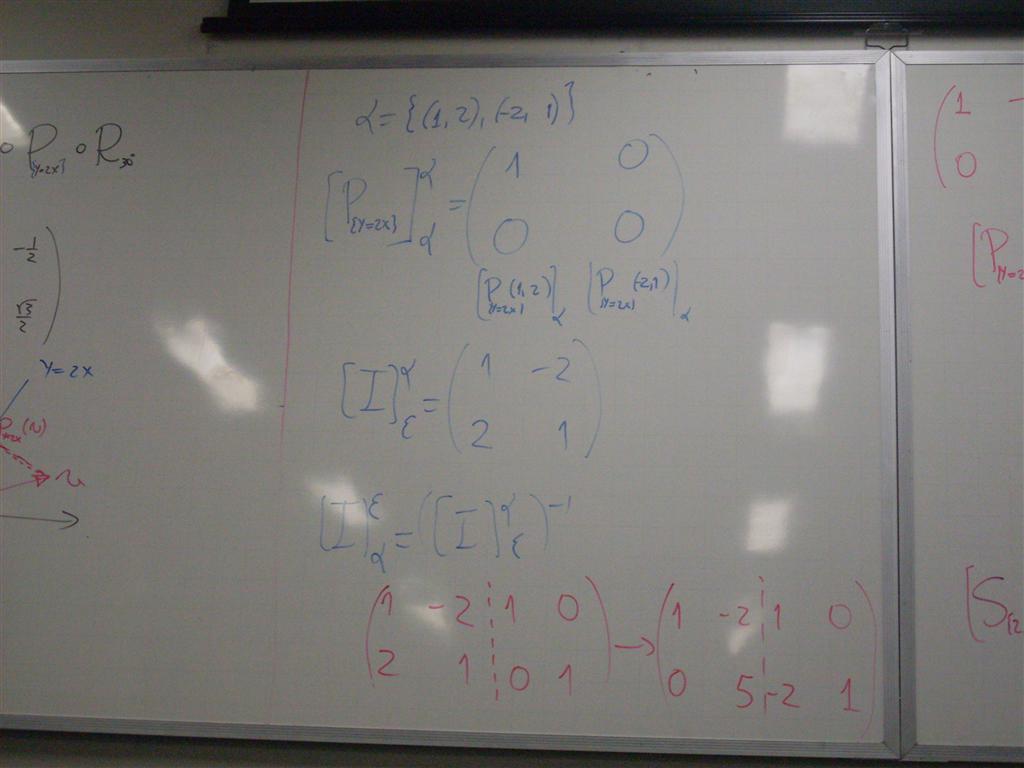 ∘ P_{{y=2x}} ∘ R_{30°}
-1/2
√3/2
y=2x
P_{y=2x}(v)
v
α = {(1,2),(-2,1)}
[P_{{y=2x}}]_α^α = ( 1 0
0 0 )
[P_{{y=2x}}(1,2)]_α [P_{{y=2x}}(-2,1)]_α
[I]_ε^α = ( 1 -2
2 1 )
[I]_α^ε = ([I]_ε^α)^{-1}
( 1 -2 ¦ 1 0 ) → ( 1 -2 ¦ 1 0 )
( 2 1 ¦ 0 1 ) ( 0 5 ¦ -2 1 )
( 1 -
0
[P_{{y=2
[S_{{2